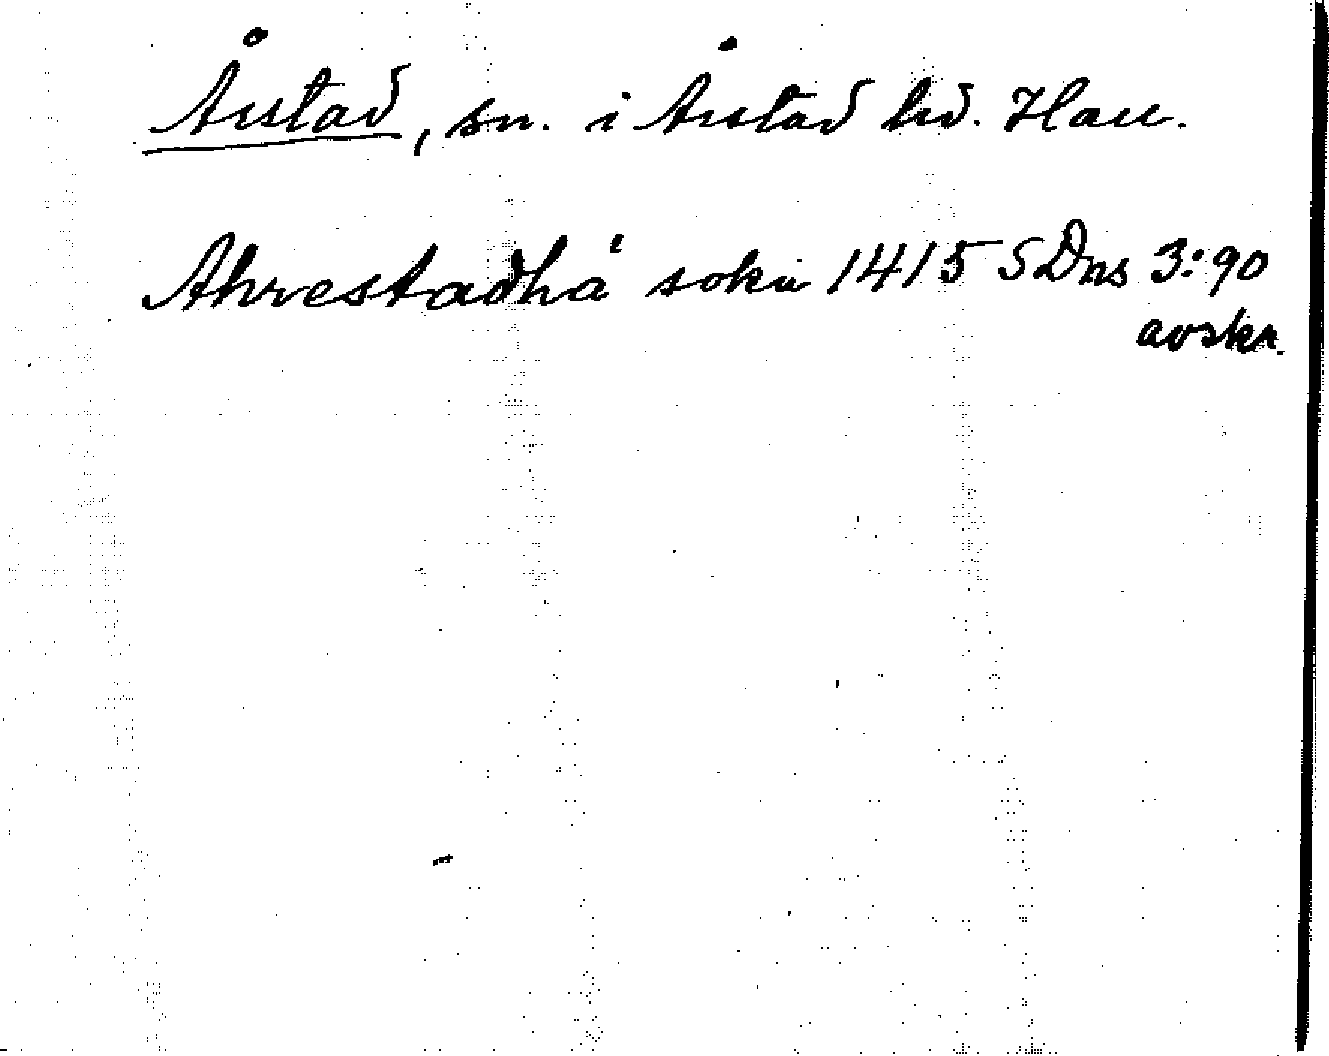 Årstad, sn. i Årstad hd. Hall.
Ahrestadhá sokn 1415 SDns 3:90
avskr.